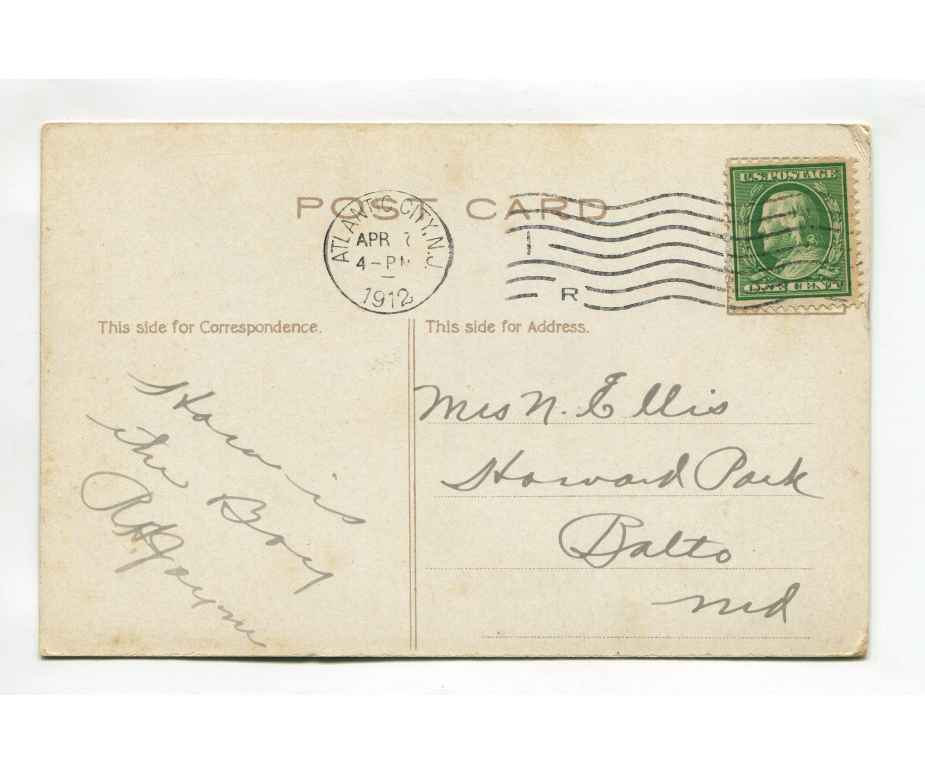 POST CARD
ATLANTIC CITY, N.J.
APR 7
4-PM
1912
1
R
U.S. POSTAGE
ONE CENT
This side for Correspondence.
This side for Address.
How is
the Boy
Mrs N. Ellis
Howard Park
Balto
Md